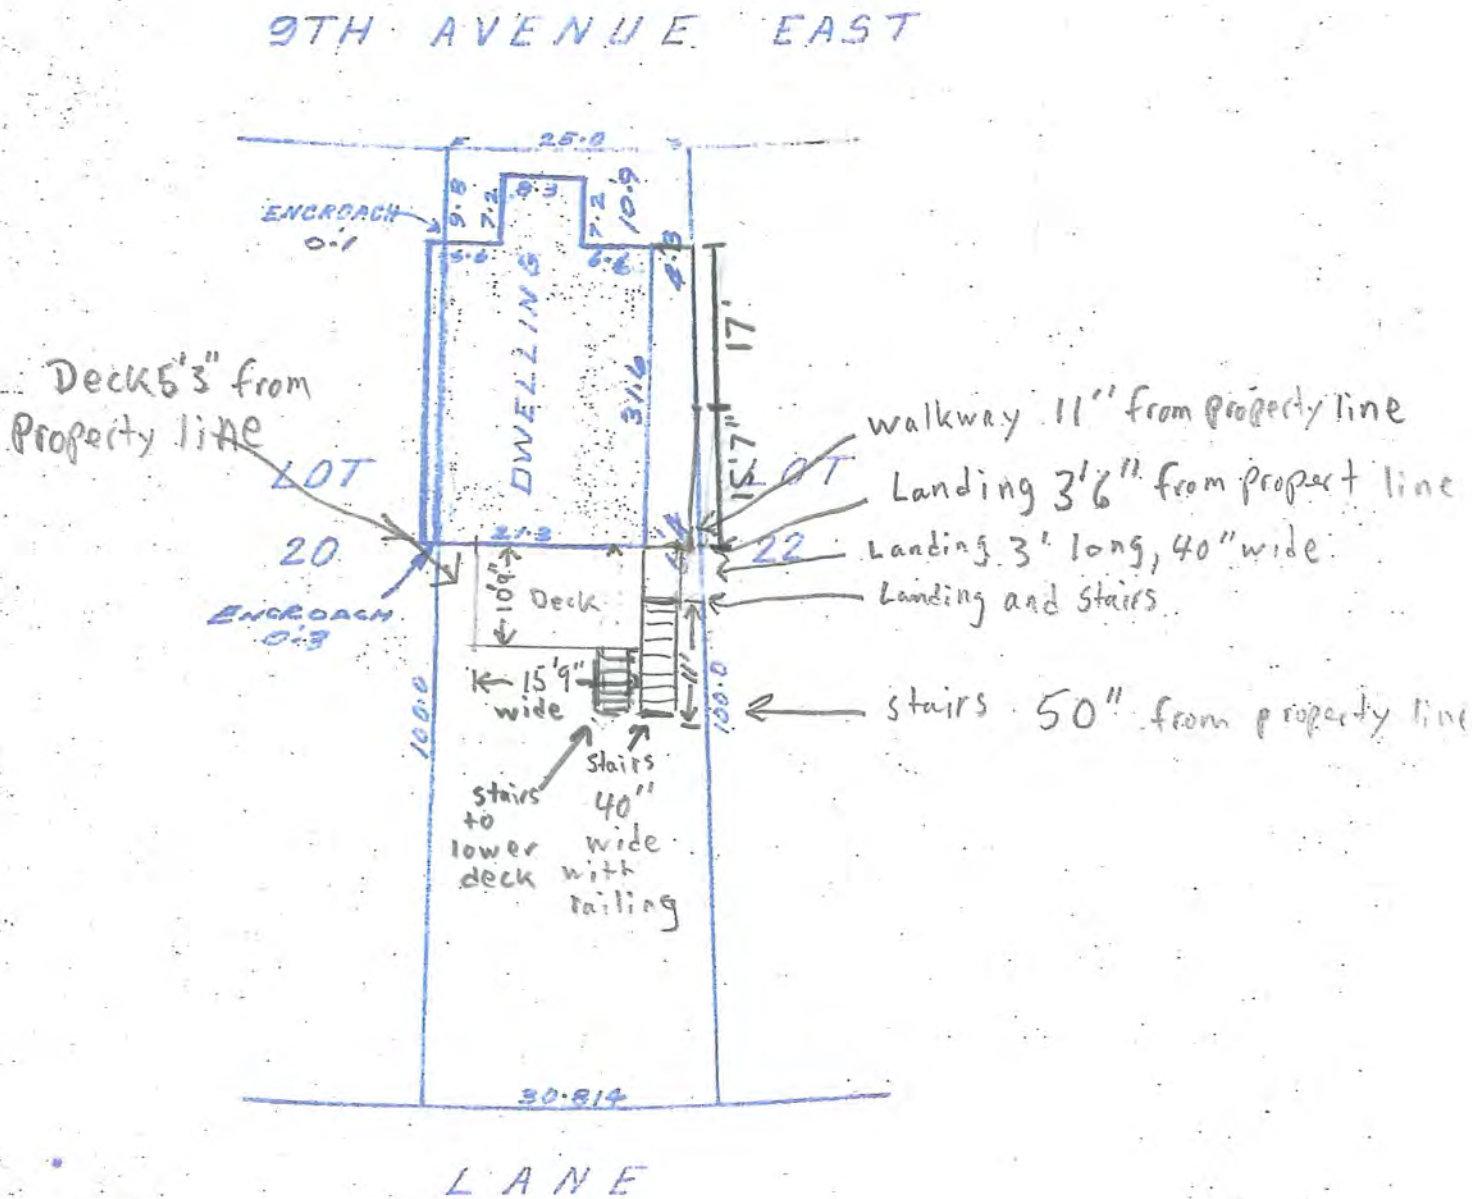 9TH AVENUE EAST
25.0
ENCROACH
0.1
9.8
7.2
8.3
7.2
10.9
5.6
6.6
4.3
DWELLING
31.6
17'
15'7"
Deck 5'3" from
Property line
walkway 11" from property line
LOT
LOT
Landing 3'6" from propert line
20
21.3
22
Landing 3' long, 40" wide
10'9"
Deck
Landing and stairs
ENCROACH
0.3
15'9"
wide
11'
100.0
100.0
stairs 50" from property line
stairs
to
lower
deck
Stairs
40"
wide
with
railing
30.814
LANE